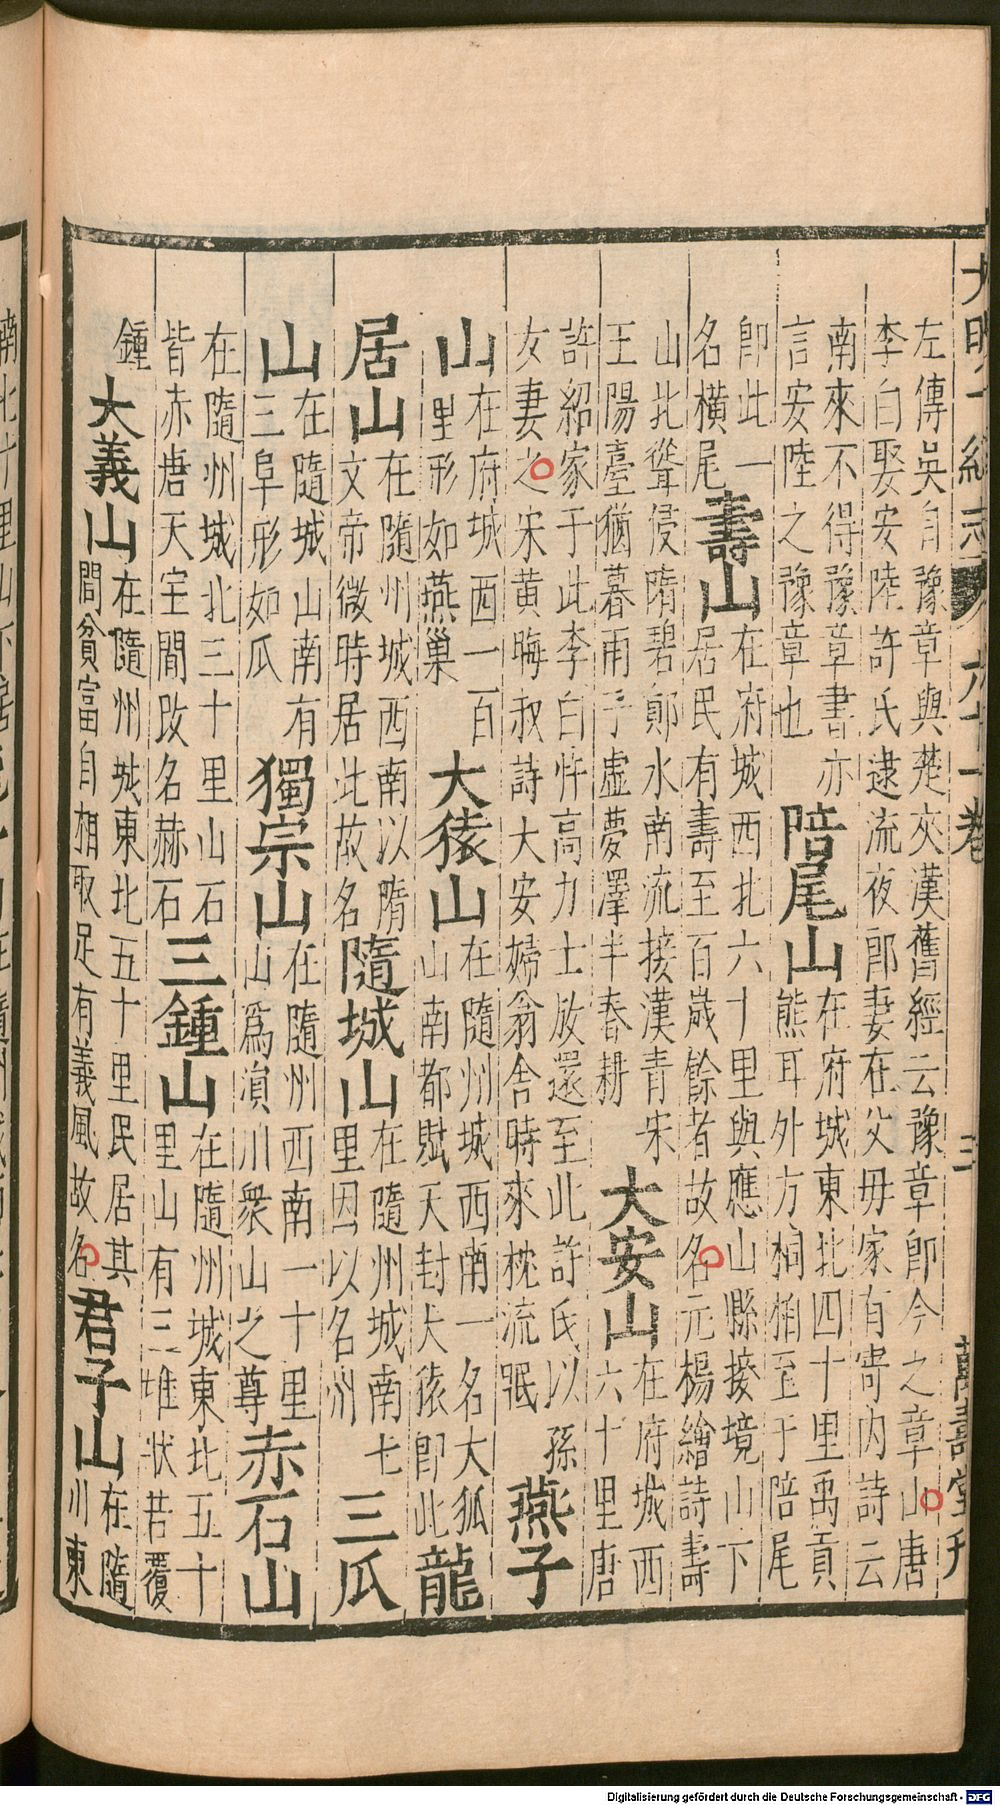 大明一統志 六十一卷 三 萬壽堂刊
左傳吳自豫章與楚夾漢舊經云豫章即今之章山唐
李白娶安陸許氏逮流夜郎妻在父毋家有寄内詩云
南來不得豫章書亦
言安陸之豫章也
陪尾山
在府城東北四十里禹貢
熊耳外方桐柏至于陪尾
即此一
名橫尾
壽山
在府城西北六十里與應山縣接境山下
居民有壽至百歲餘者故名元楊繪詩壽
山北聳侵隋碧鄖水南流接漢青宋
王陽臺猶暮雨子虛夢澤半春耕
大安山
在府城西
六十里唐
許紹家于此李白忤高力士放還至此許氏以孫
女妻之宋黄晦叔詩大安婦翁舍時來枕流眠
燕子
山
在府城西一百
里形如燕巢
大猿山
在隨州城西南一名大狐
山南都賦天封大猿即此
龍
居山
在隨州城西南以隋
文帝微時居此故名
隨城山
在隨州城南七
里因以名州
三瓜
山
在隨城山南有
三阜形如瓜
獨宗山
在隨州西南一十里
山爲溳川衆山之尊
赤石山
在隨州城北三十里山石
皆赤唐天宝間改名赫石
三鍾山
在隨州城東北五十
里山有三堆狀若覆
鍾
大義山
在隨州城東北五十里民居其
間貧富自相取足有義風故名
君子山
在隨
川東
Digitalisierung gefördert durch die Deutsche Forschungsgemeinschaft - DFG